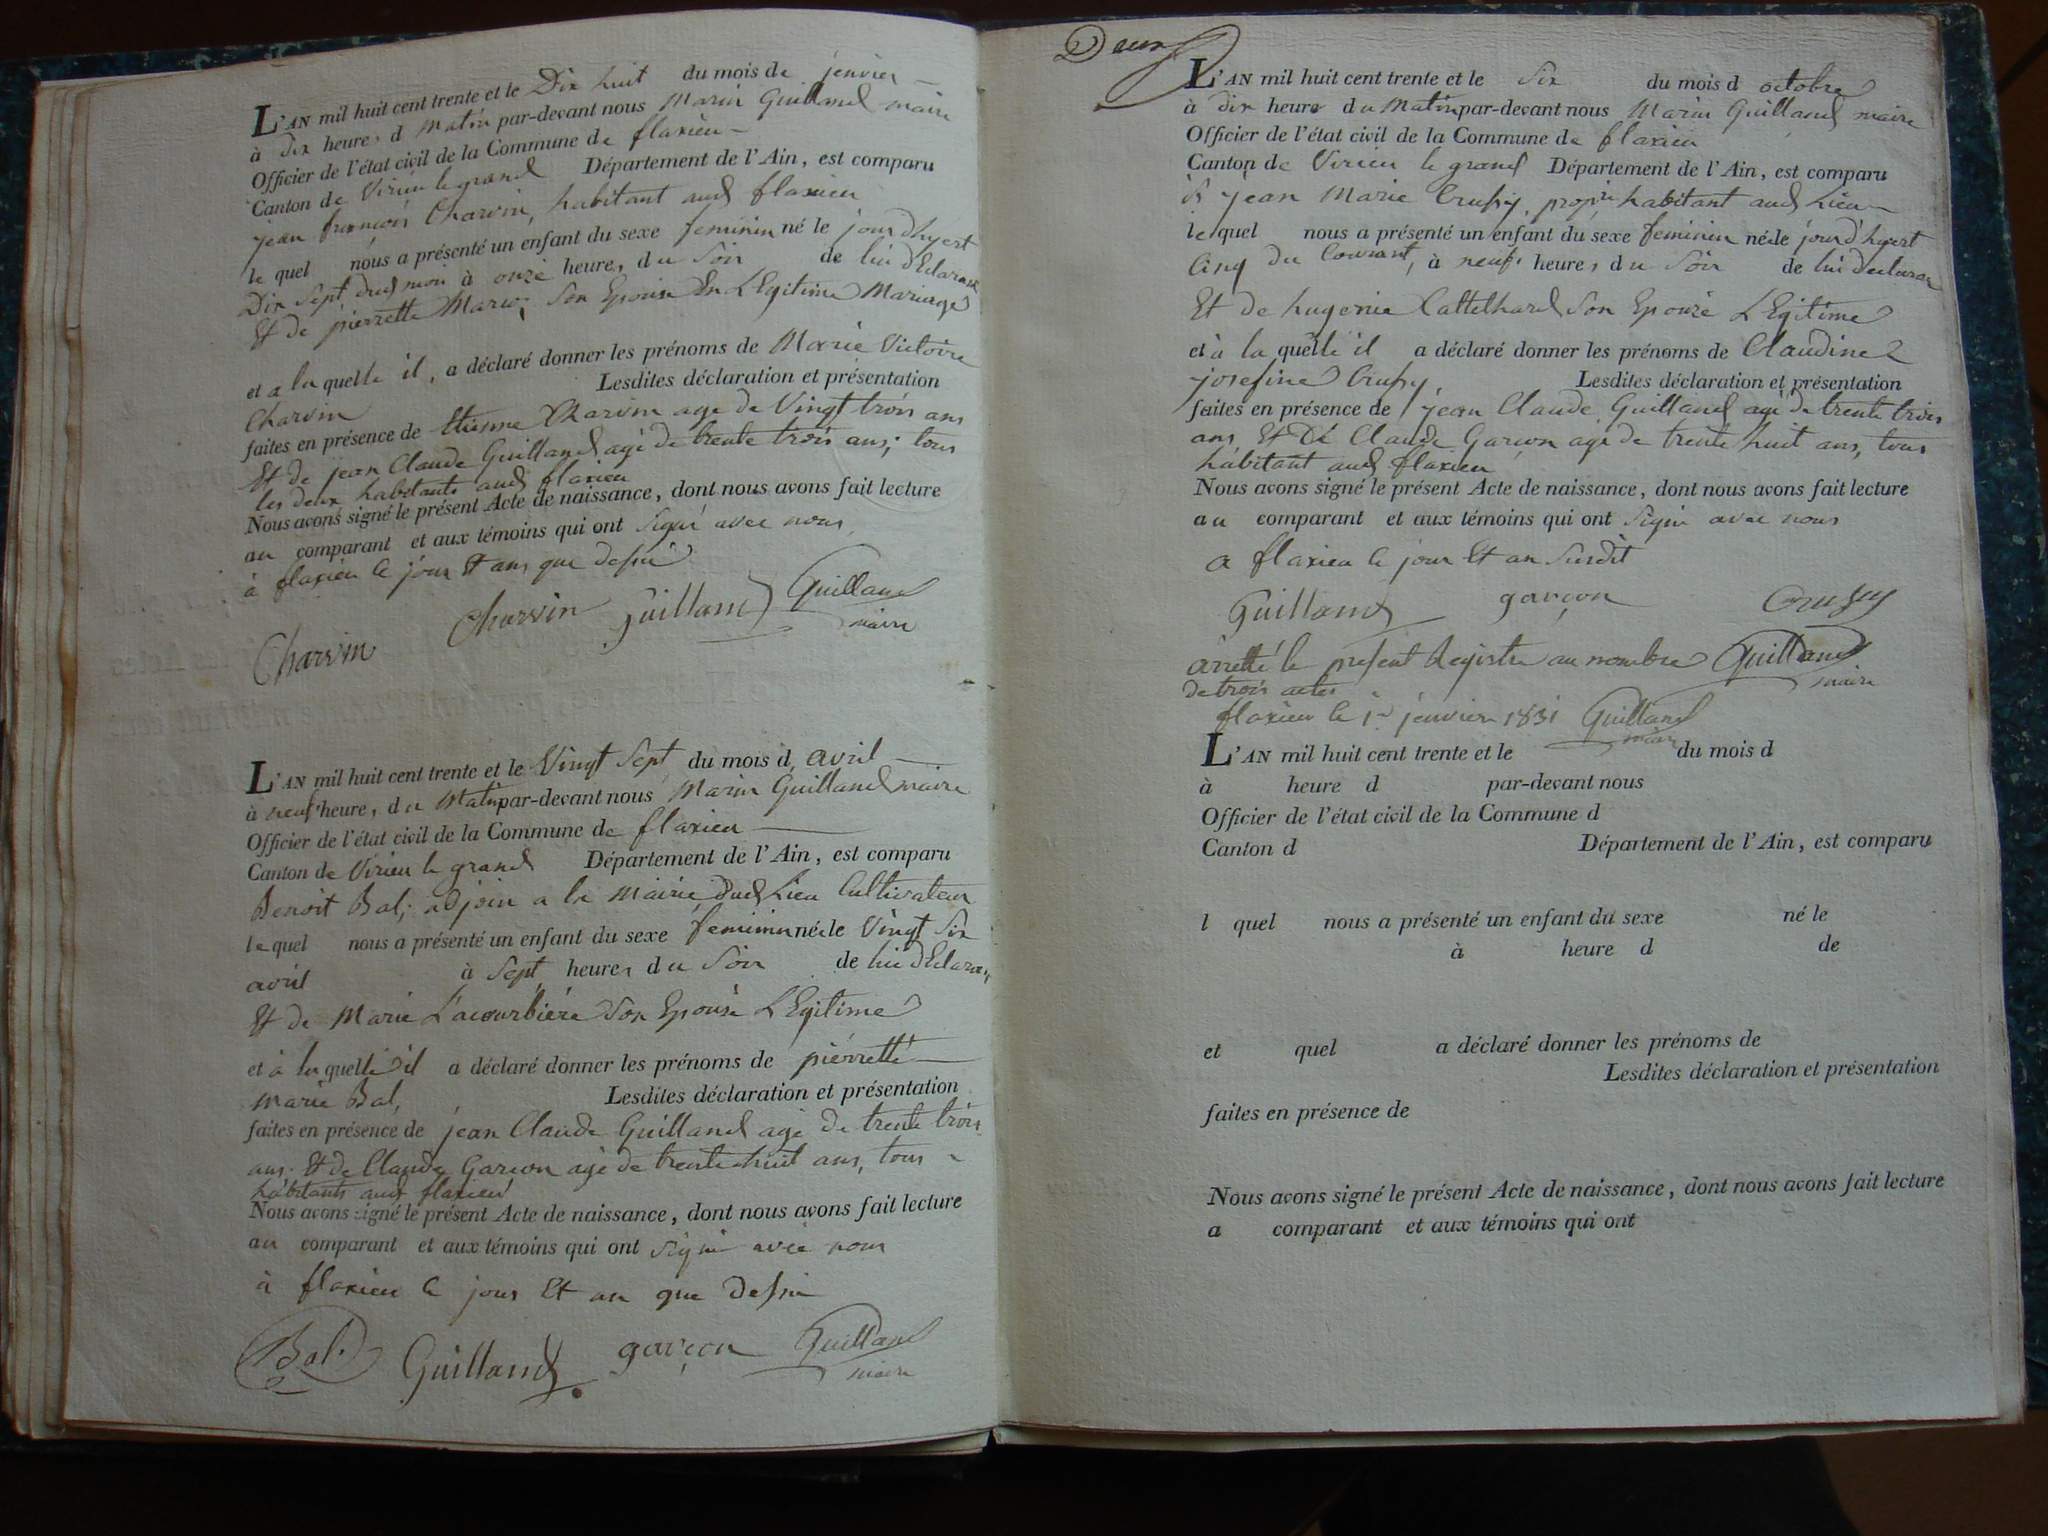 L'AN mil huit cent trente et le Dix huit du mois de jenvier
à dix heures d matin par-devant nous Marin Guilland maire
Officier de l'état civil de la Commune de flaxieu
Canton de Virieu le grand Département de l'Ain, est comparu
jean francois Charvin, habitant aud flaxieu
le quel nous a présenté un enfant du sexe feminin né le jour d'hyert
Dix Sept dud moi à onze heures du Soir de lui dEclarant
Et de pierrette Son Epouse En LEgitime Mariage
et a la quelle il, a déclaré donner les prénoms de Marie Victoire
Charvin Lesdites déclaration et présentation
faites en présence de Etienne Charvin age de Vingt trois ans
Et de jean Claude Guilland agé de trente trois ans; tous
les deux habitants aud flaxieu
Nous avons signé le présent Acte de naissance, dont nous avons fait lecture
au comparant et aux témoins qui ont Signé avec nous
à flaxieu le jour Et ans que dessu
Charvin Charvin Guilland Guilland
maire
L'AN mil huit cent trente et le Vingt Sept du mois d avril
à neuf heure, du Matin par-devant nous Marin Guilland maire
Officier de l'état civil de la Commune de flaxieu
Canton de Virieu le grand Département de l'Ain, est comparu
Benoit Bal; adjoin a la Mairie dud Lieu Cultivateur
le quel nous a présenté un enfant du sexe feminin née le Vingt Six
avril à Sept heures du Soir de lui dEclarant
Et de Marie Lacourbiére Son Epouse LEgitime
et à la quelle il a déclaré donner les prénoms de pierrette
marie Bal, Lesdites déclaration et présentation
faites en présence de jean Claude Guilland agé de trente trois
ans. Et de Claude Garcon agé de trente huit ans, tous
habitants aud flaxieu
Nous avons signé le présent Acte de naissance, dont nous avons fait lecture
au comparant et aux témoins qui ont Signé avec nous
à flaxieu le jour Et an que dessu
Bal. Guilland garçon Guilland
maire
Deux
L'AN mil huit cent trente et le Six du mois d octobre
à dix heure du Matin par-devant nous Marin Guilland maire
Officier de l'état civil de la Commune de flaxieu
Canton de Virieu le grand Département de l'Ain, est comparu
jean Marie Crussy, habitant aud Lieu
le quel nous a présenté un enfant du sexe feminin née le jour d'hyert
Cinq du Courant, à neuf heures du Soir de lui declarant
Et de hugenie Cattelhard Son Epouze LEgitime
et à la quelle il a déclaré donner les prénoms de Claudine
josefine Crussy. Lesdites déclaration et présentation
faites en présence de jean Claude Guilland agé de trente trois
ans Et Dé Claude Garcon agé de trente huit ans, tous
habitant aud flaxieu
Nous avons signé le présent Acte de naissance, dont nous avons fait lecture
au comparant et aux témoins qui ont Signé avec nous
a flaxieu le jour Et an Susdit
Guilland garçon Crussy
arretté le present Registre au nombre Guilland
de trois actes maire
flaxieu le 1er jenvier 1831 Guilland
maire
L'AN mil huit cent trente et le du mois d
à heure d par-devant nous
Officier de l'état civil de la Commune d
Canton d Département de l'Ain, est comparu
l quel nous a présenté un enfant du sexe né le
à heure d de
et quel a déclaré donner les prénoms de
Lesdites déclaration et présentation
faites en présence de
Nous avons signé le présent Acte de naissance, dont nous avons fait lecture
a comparant et aux témoins qui ont